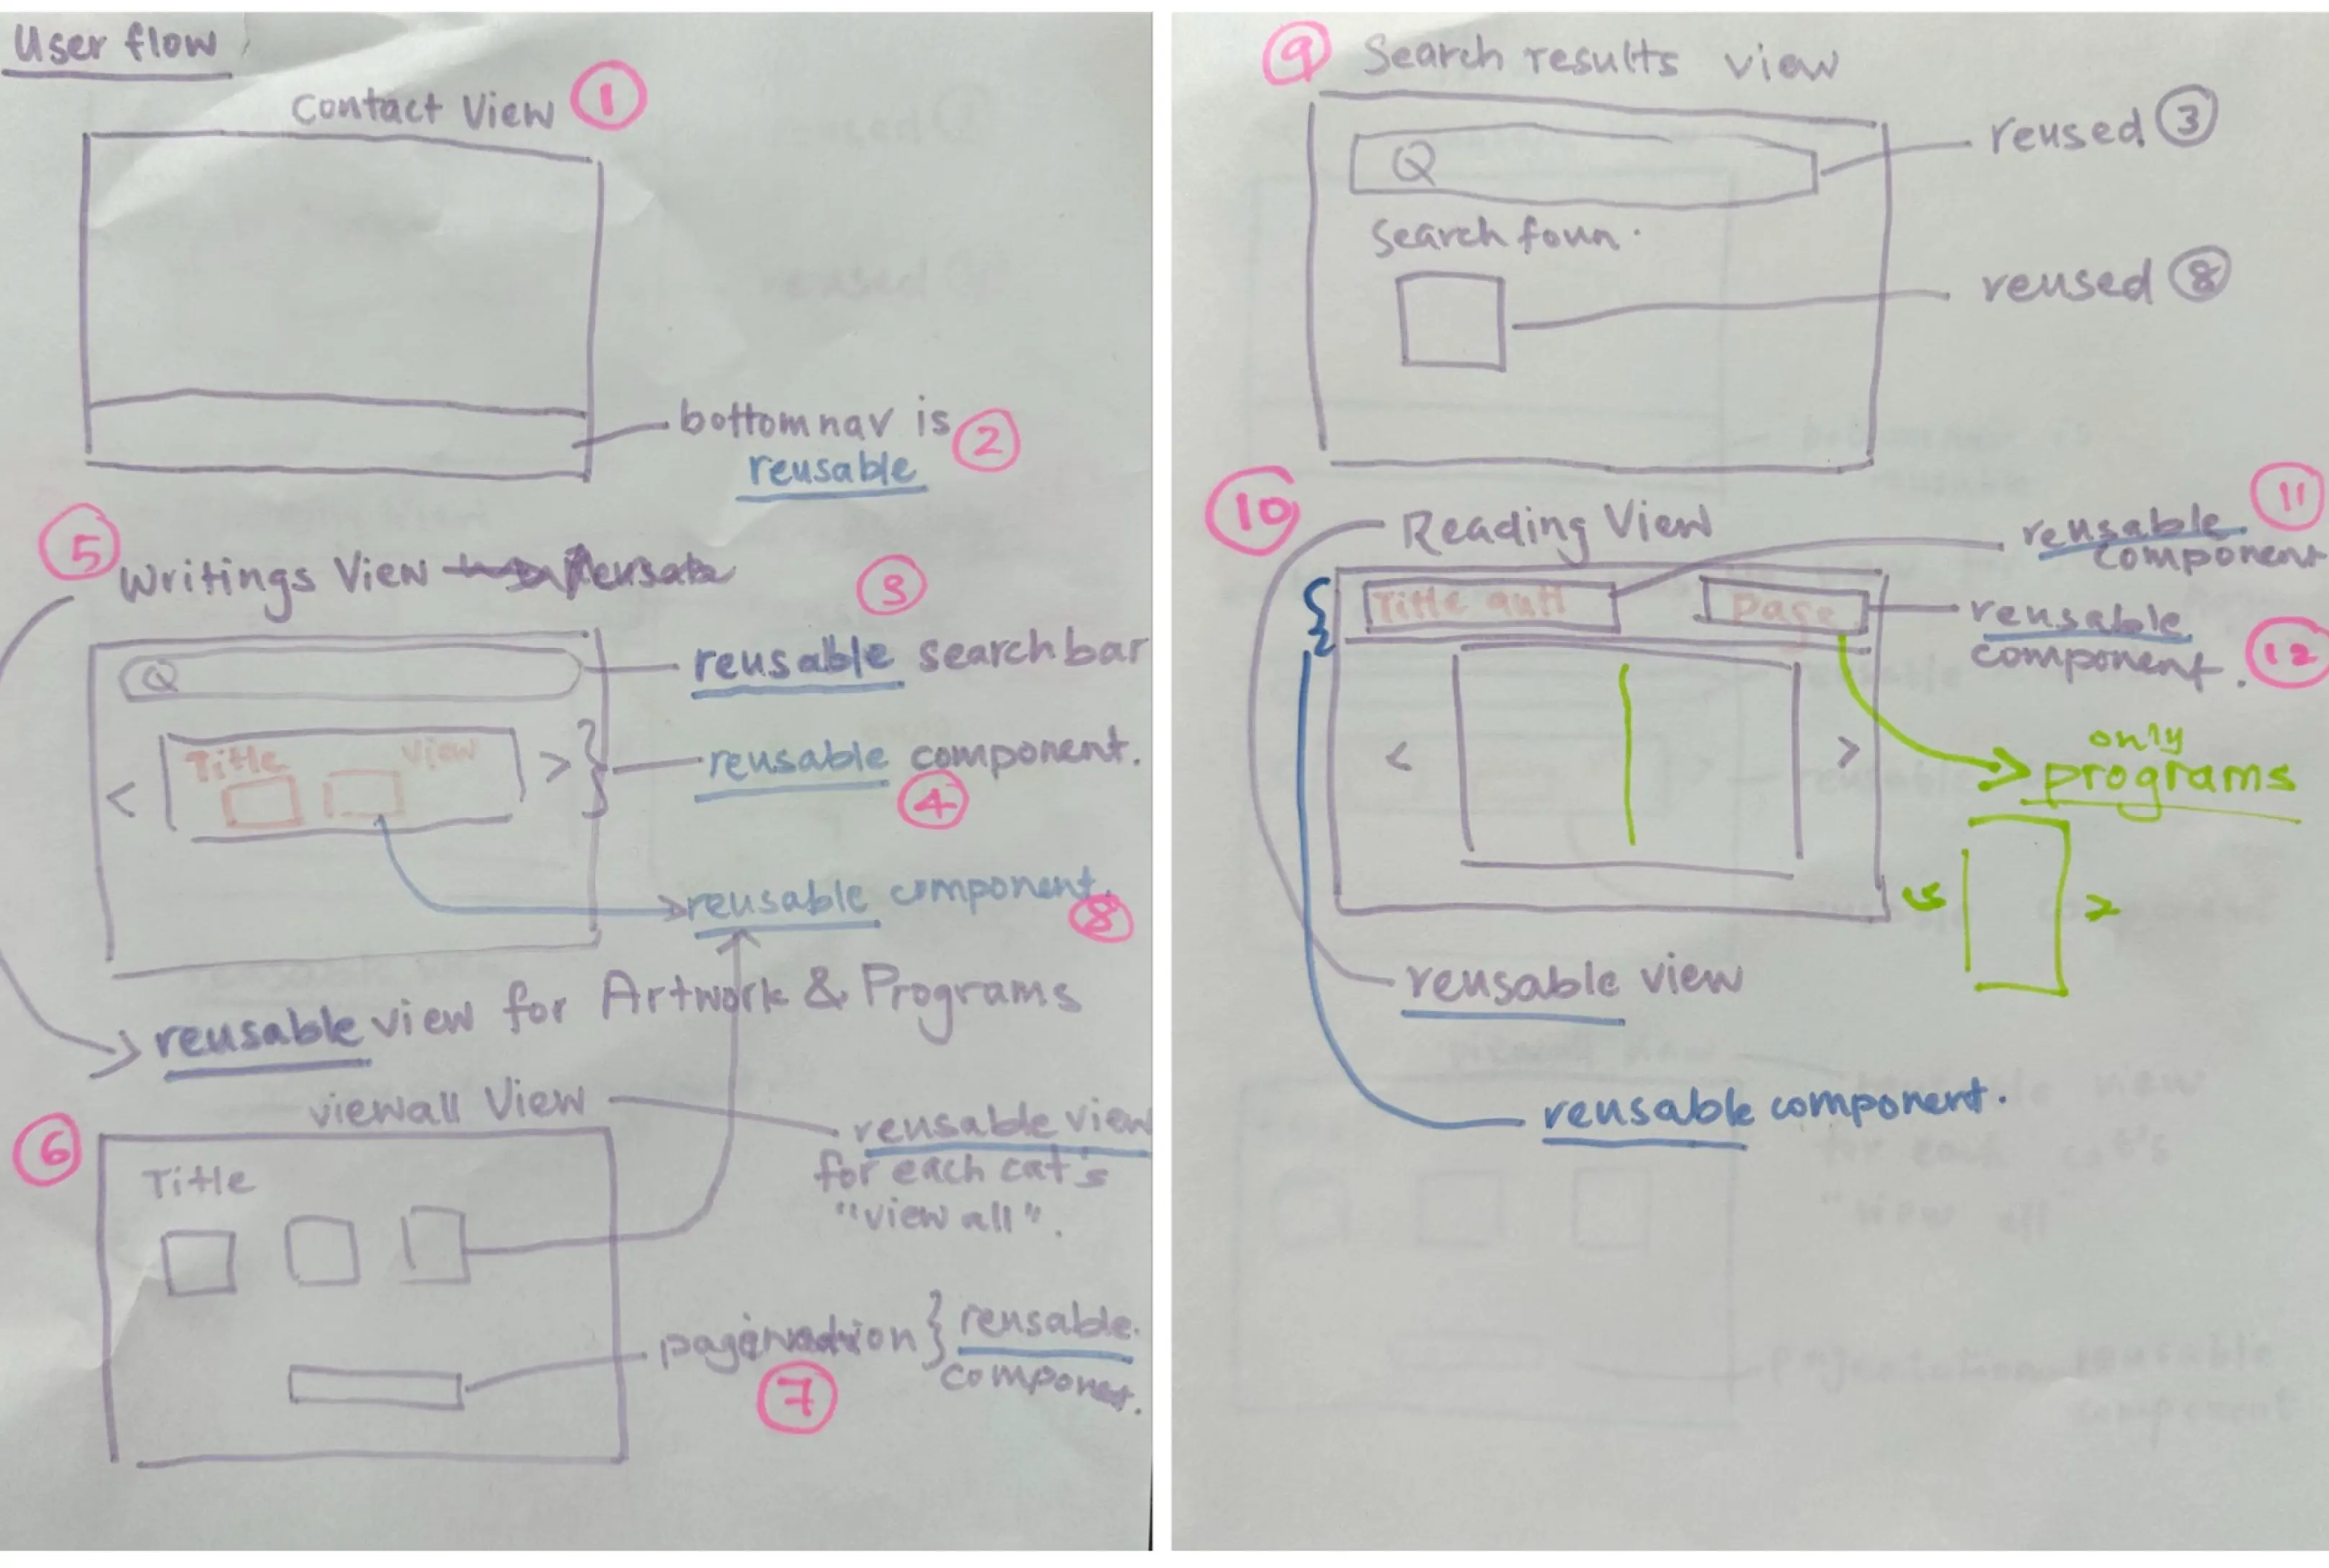 User flow
Contact View 1
bottom nav is 2
reusable
5
Writings View
3
Q
reusable searchbar
Title view
< >
reusable component.
4
reusable component.
8
reusable view for Artwork & Programs
viewall View
6
reusable view
for each cat's
"view all".
Title
pagination } reusable
component.
7
9 Search results view
Q
reused 3
Search foun.
reused 8
10
Reading View
11
reusable
component
Title auth
page
reusable
component.
12
< >
only
programs
< >
reusable view
reusable component.